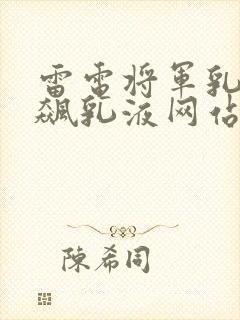 雷电将军乳
飙乳液网站
陳希同